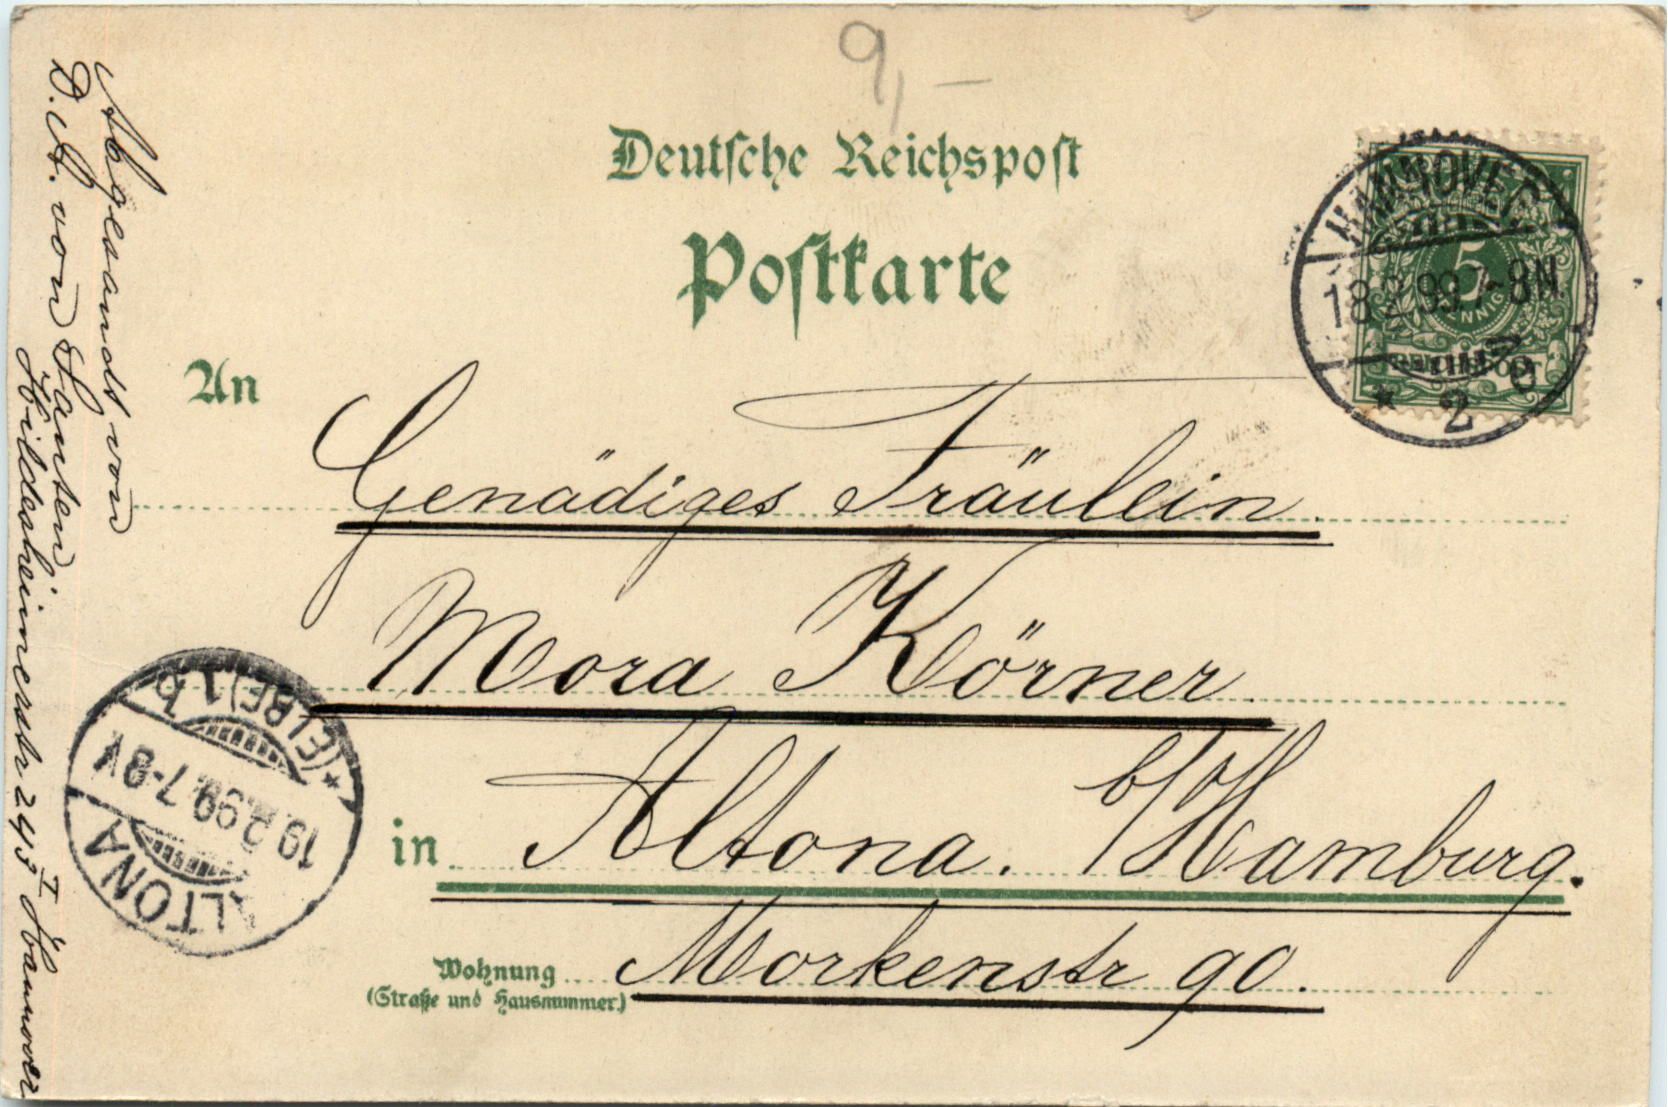 9,–
Deutsche Reichspost
Postkarte
HANNOVER
18.2.99.7-8N.
* 2 c
5
PFENNIG
REICHSPOST
An
Genädiges Fräulein
Mora Körner
in Altona. b/Hamburg.
Wohnung
(Straße und Hausnummer)
Morkenstr 90.
Abgesandt von
D. A. von Santen
Hildesheimerstr 245 I Hannover
ALTONA
19.2.99.7-8V
* (ELBE) 1 b